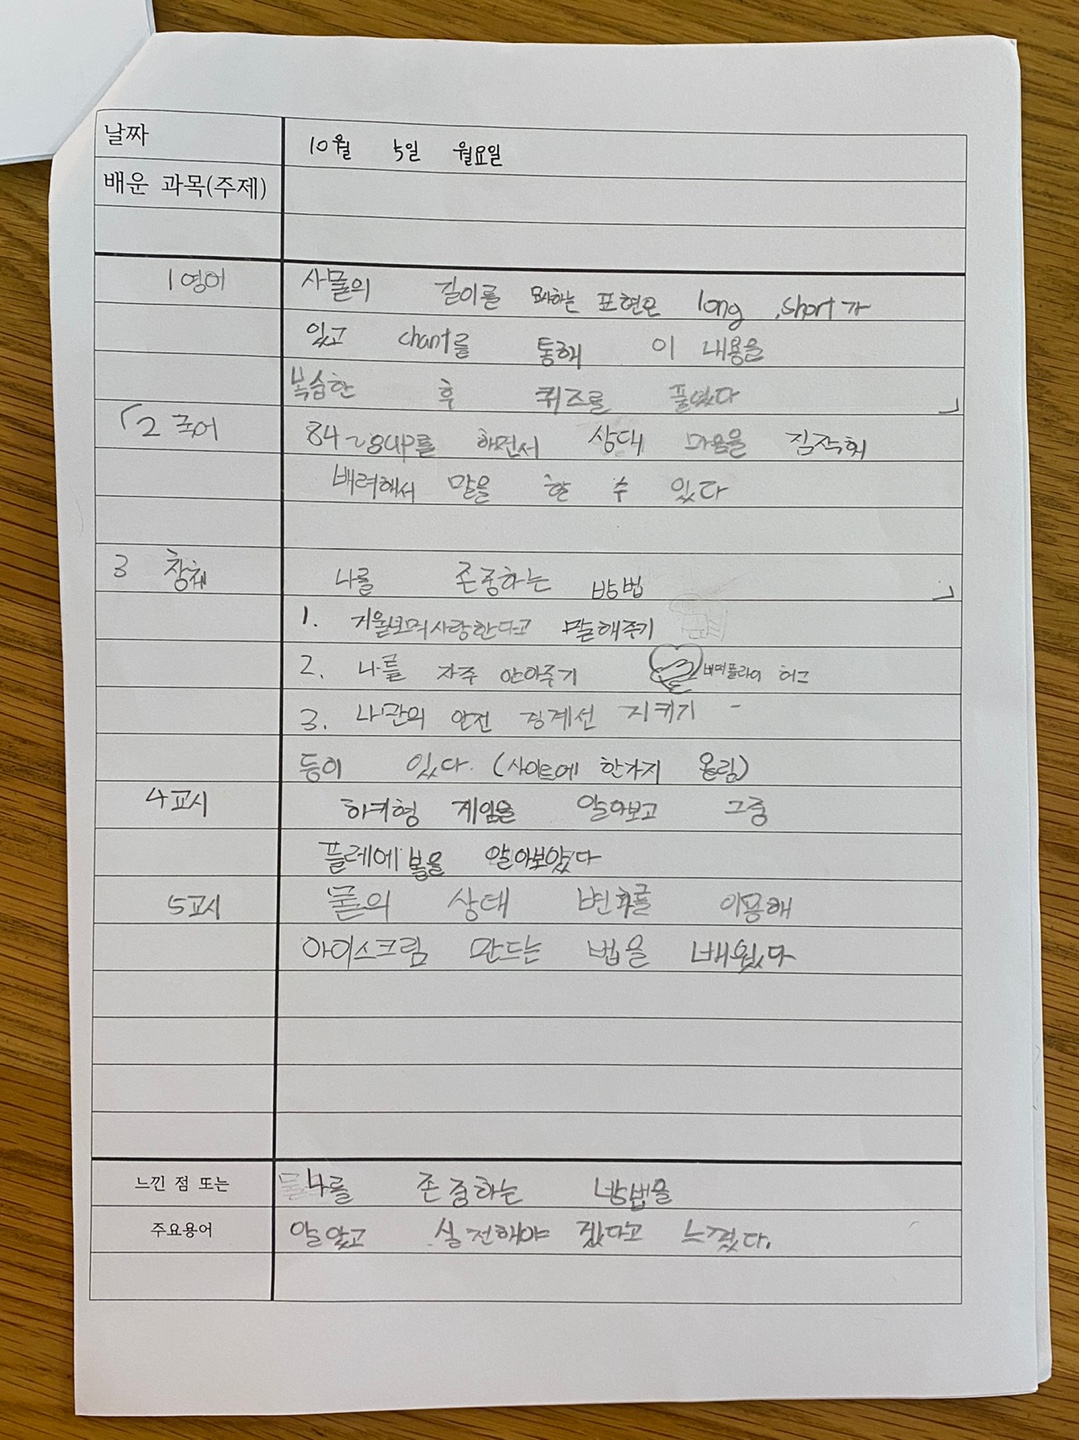 날짜 10월 5일 월요일
배운 과목(주제)
1 영어 사물의 길이를 묘사하는 표현은 long ,short가
있고 chant를 통해 이 내용을
복습한 후 퀴즈를 풀었다 」
「2 국어 84~85p를 하면서 상대 마음을 짐작회
배려해서 말을 한 수 있다
3 창체 나를 존중하는 방법 」
1. 거울보며사랑한다고 말해주기
2. 나를 자주 안아주기 버터플라이 허그
3. 나만의 안전 경계선 지키기 -
등이 있다. (사이트에 한가지 올림)
4교시 하키형 게임을 알아보고 그중
플레에볼을 알아보았다
5교시 물의 상태 변화를 이용해
아이스크림 만드는 법을 배웠다
느낀 점 또는 나를 존중하는 방법을
주요용어 알았고 실전해야 겠다고 느꼈다.